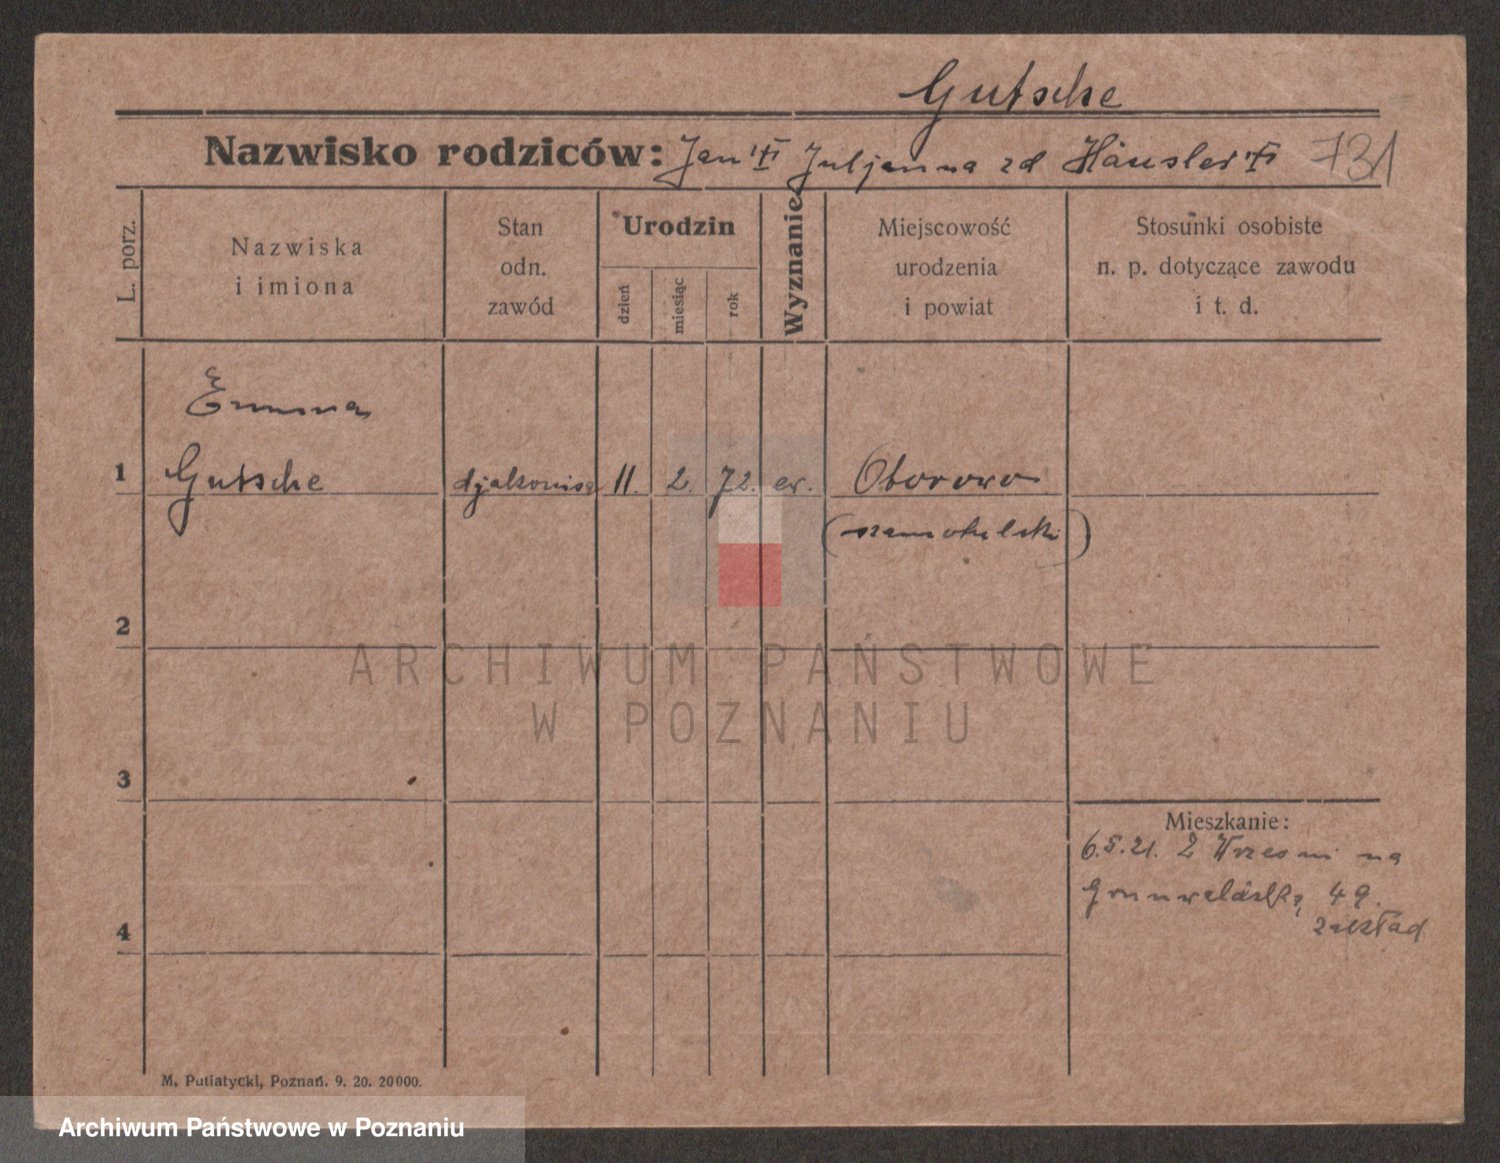 Gutsche
Nazwisko rodziców: Jan Juljanna zd Häusler 731
L. porz.
Nazwiska
i imiona
Stan
odn.
zawód
Urodzin
dzień
miesiąc
rok
Wyznanie
Miejscowość
urodzenia
i powiat
Stosunki osobiste
n. p. dotyczące zawodu
i t. d.
Emma
1 Gutsche djakonisa 11. 2. 72. ew. Oborowo
(szamotulski)
2
ARCHIWUM PAŃSTWOWE
W POZNANIU
3
Mieszkanie:
6.5.21. Z Wrzesni na
Grunwaldzką 49.
zakład
4
M. Putiatycki, Poznań. 9. 20. 20000.
Archiwum Państwowe w Poznaniu